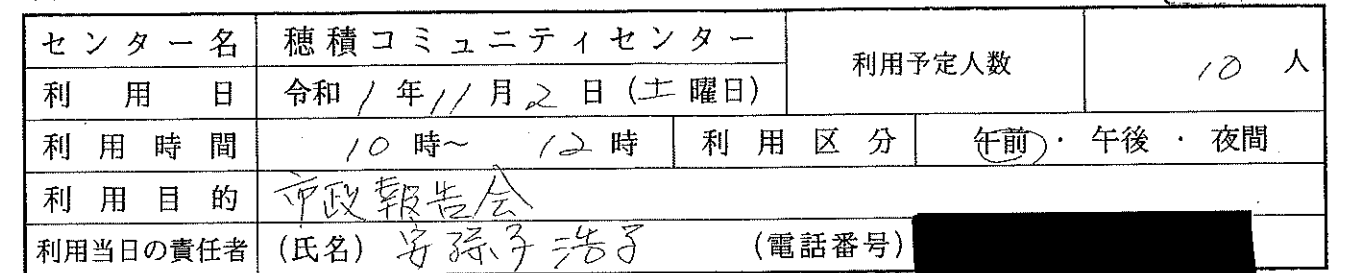 センター名 穂積コミュニティセンター 利用予定人数 10 人
利用日 令和1年11月2日(土曜日)
利用時間 10時~ 12時 利用区分 午前・午後・夜間
利用目的 市政報告会
利用当日の責任者 (氏名) 安孫子浩子 (電話番号)